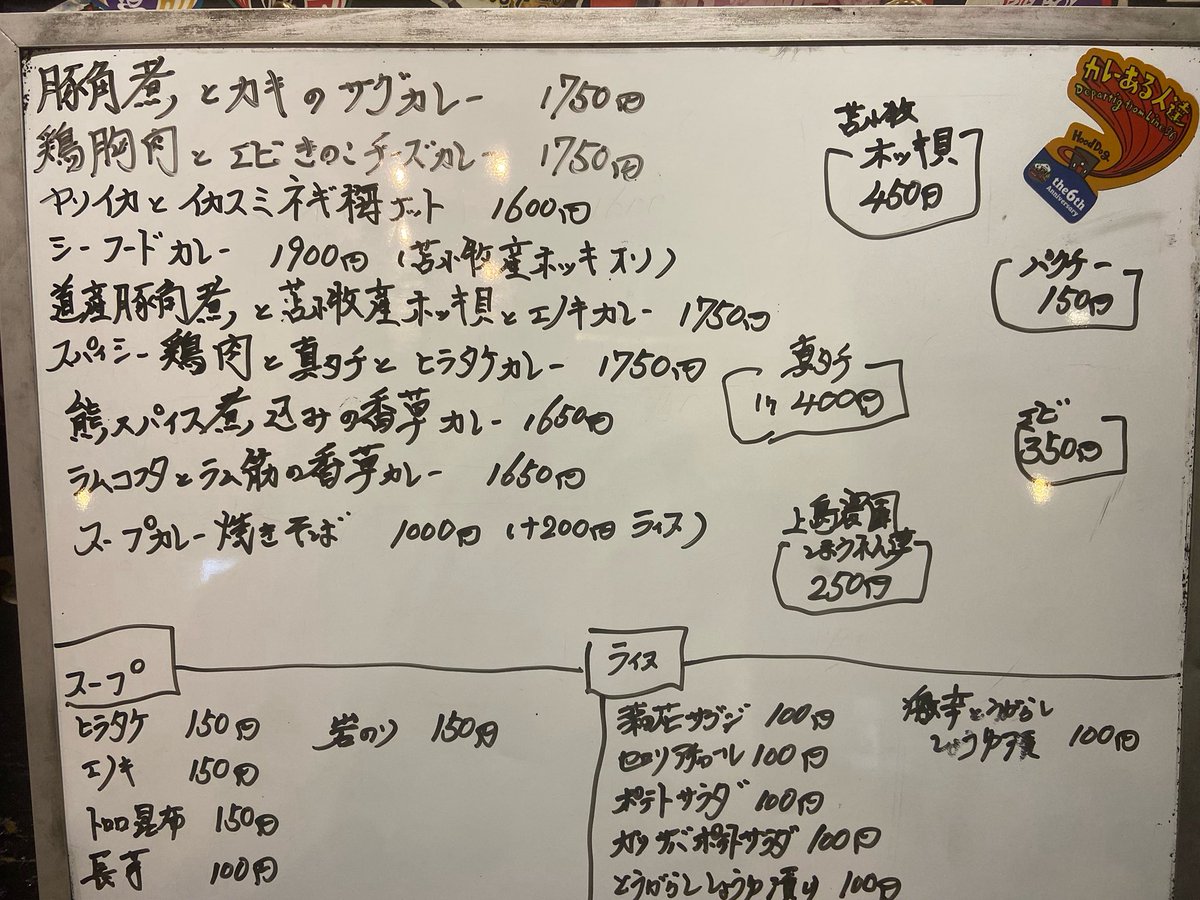 豚角煮とカキのサグカレー 1750円
鶏胸肉とエビきのこチーズカレー 1750円
ヤリイカとイカスミネギ 1600円
シーフードカレー 1900円 (苫小牧産ホッキ入り)
道産豚角煮と苫小牧産ホッキ貝とエノキカレー 1750円
スパイシー鶏肉と真タチとヒラタケカレー 1750円
熊スパイス煮込みの香草カレー 1650円
ラムコフタとラム筋の香草カレー 1650円
スープカレー焼きそば 1000円 (+200円 ライス)
苫小牧
ホッキ貝
450円
カレーある人達
Departig from Line
HoodDog
the 6th
Anniversary
パクチー
150円
真タチ
1ケ 400円
エビ
350円
上島農園
250円
スープ
ヒラタケ 150円
エノキ 150円
トロロ昆布 150円
長芋 100円
岩のり 150円
ライス
菊花サブジ 100円
セロリアチャール 100円
ポテトサラダ 100円
ポテトサラダ 100円
とうがらししょうゆ漬け 100円
激辛とうがらし
しょうゆ漬 100円